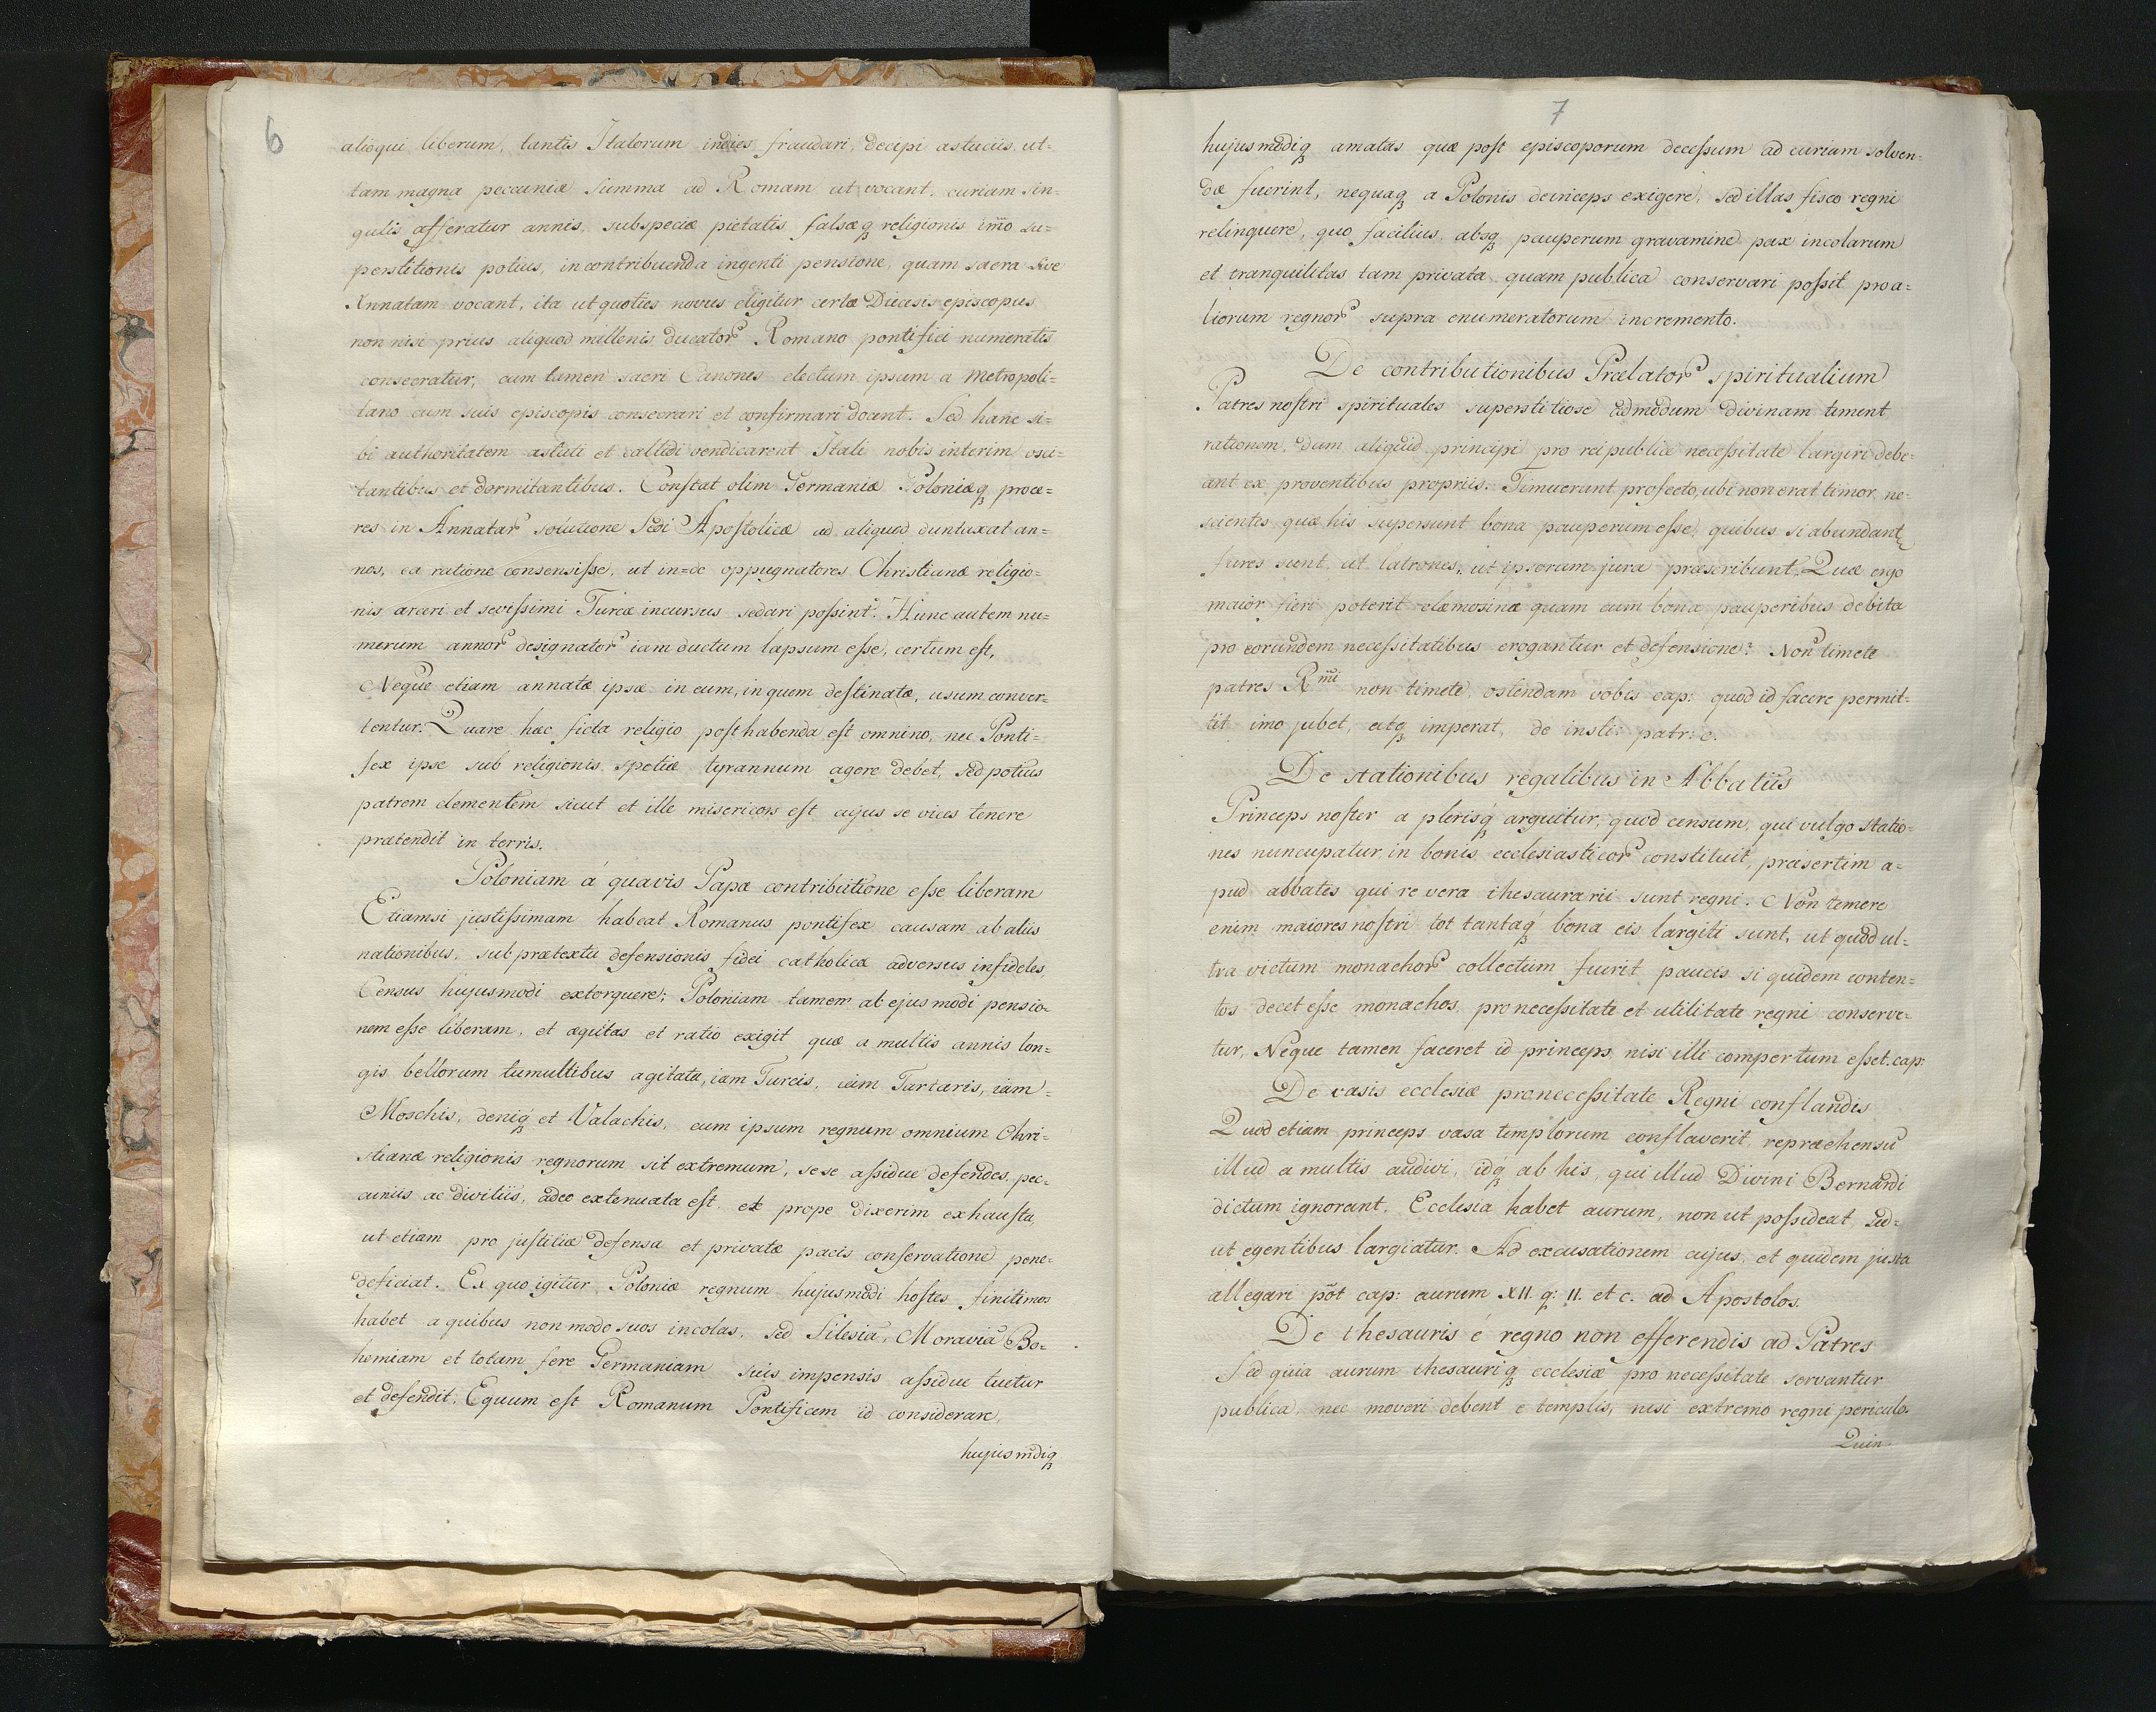 6
alioqui liberum, tantis Italorum indies fraudari, decipi astuciis, ut-
tam magna pecuniæ summa ad Romam ut vocant, curiam sin=
gulis afferatur annis, subspeciæ pietatis falsæqꝫ religionis imo su=
perstitionis potius, in contribuenda ingenti pensione, quam sacra sive
Annatam vocant, ita ut quoties novus eligitur certæ Diæcesis episcopus
non nisi prius aliquod millenis ducator' Romano pontifici numeratis
consecratur, cum tamen sacri Canones electum ipsum a Metropoli=
tano cum suis episcopis consecrari et confirmari docent. Sed hanc si=
bi authoritatem astuti et callidi vendicarent Itali nobis interim osci=
tantibus et dormitantibus. Constat olim Germaniæ Poloniæqꝫ proce=
res in Annatar' solutione Sedi Apostolicæ ad aliquod duntaxat an=
nos, ea ratione consensisse, ut in=de oppugnatores Christianæ religio=
nis arceri et sevissimi Turcæ incursus sedari possint. Hunc autem nu=
merum annor' designator' iam ductum lapsum esse, certum est,
Neque etiam annatæ ipsæ in eum, in quem destinatæ, usum conver=
tentur. Quare hæc ficta religio posthabenda est omnino, nec Ponti=
fex ipse sub religionis spetiæ tyrannum agere debet, sed potius
patrem clementem sicut et ille misericors est cujus se vices tenere
prætendit in terris.
Poloniam á quavis Papæ contributione esse liberam
Etiamsi justissimam habeat Romanus pontifex causam ab aliis
nationibus, sub prætextu defensionis fidei catholicæ adversus infideles,
Census hujusmodi extorquere; Poloniam tamem ab ejusmodi pensio=
nem esse liberam, et æquitas et ratio exigit quæ a multis annis lon=
gis bellorum tumultibus agitata, iam Turcis, iam Tartaris, iam=
Moschis, deniqꝫ et Valachis, cum ipsum regnum omnium Chri=
stianæ religionis regnorum sit extremum, sese assidue defendes, pec=
cuniis ac divitiis, adeo extenuata est, et prope dixerim exhausta,
ut etiam pro justitiæ defensa et privatæ pacis conservatione pene=
deficiat. Ex quo igitur Poloniæ regnum hujusmodi hostes finitimos
habet a quibus non modo suos incolas, sed Silesia, Moravia Bo=
hemiam et totam fere Germaniam suis impensis assidue tuetur
et defendit. Equum est Romanum Pontificem id considerare,
hujusmdiqꝫ
7
hujusmodiqꝫ amatas quæ post episcoporum decessum ad curiam solven=
dæ fuerint, nequaqꝫ a Polonis deinceps exigere, sed illas fisco regni
relinquere, quo facilius, absqꝫ pauperum gravamine pax incolarum
et tranquilitas tam privata quam publica conservari possit pro a=
liorum regnor' supra enumeratorum incremento.
De contributionibus Prælator' spiritualium
Patres nostri spirituales superstitiose admodum divinam timent
rationem, dum aliquid principi pro rei publicæ necessitate largiri debe=
ant ex proventibus propriis. Timuerunt profecto, ubi non erat timor, ne=
scientes quæ his supersunt bona pauperum esse, quibus si abundant
fures sunt, ut latrones, ut ipsorum jura præscribunt. Quæ ergo
maior fieri poterit elæmosina quam cum bona pauperibus debita
pro eorundem necessitatibus erogantur et defensione? Non timete
patres Rmi non timete, ostendam vobis cap: quod id facere permit=
tit, imo jubet, atqꝫ imperat, de insti: patr: c.
De stationibus regalibus in Abbatiis
Princeps noster a plerisqꝫ arguitur, quod censum, qui vulgo statio=
nes nuncupatur, in bonis ecclesiasticor' constituit, præsertim a=
pud abbates qui re vera thesaurarii sunt regni. Non temere
enim maiores nostri tot tantaqꝫ bona eis largiti sunt, ut quod ul=
tra victum monachor' collectum fuirit paucis si quidem conten=
tos decet esse monachos, pro necessitate et utilitate regni conserve=
tur, Neque tamen faceret id princeps, nisi illi compertum esset. cap:
De vasis ecclesiæ pro necessitate Regni conflandis
Quod etiam princeps vasa templorum conflaverit, repræhensu
illud a multis audivi, idqꝫ ab his, qui illud Divini Bernardi
dictum ignorant. Ecclesia habet aurum, non ut possideat, sed=
ut egentibus largiatur. Ad excusationem cujus, et quidem justa
allegari põt cap: aurum XII. q: II. et c. ad Apostolos.
De thesauris é regno non efferendis ad Patres
Sed quia aurum thesauriqꝫ ecclesiæ pro necessitate servantur
publica, nec moveri debent e templis, nisi extremo regni periculo.
Quin